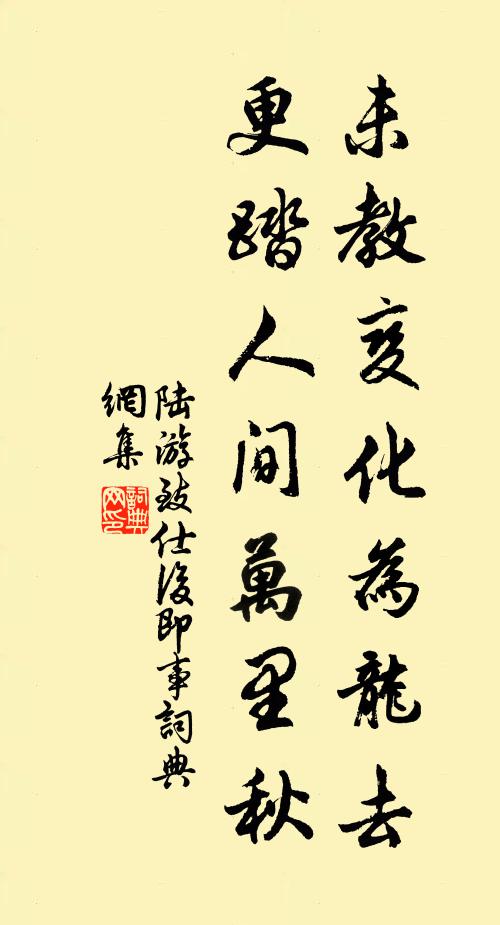 未教变化為龍去
更踏人间萬里秋
陆游致仕後即事詞典
網集
詞典
网印